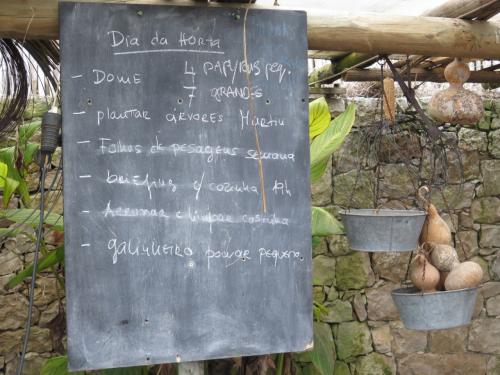 Dia da Horta
- Dome 4 PAPYRUS peq.
7 GRANDES
- plantar árvores Martin
- Folhas de pesagens semana
- briefing c/ cozinha 12h
- Arrumar e limpar cozinha
- galinheiro pomar pequeno